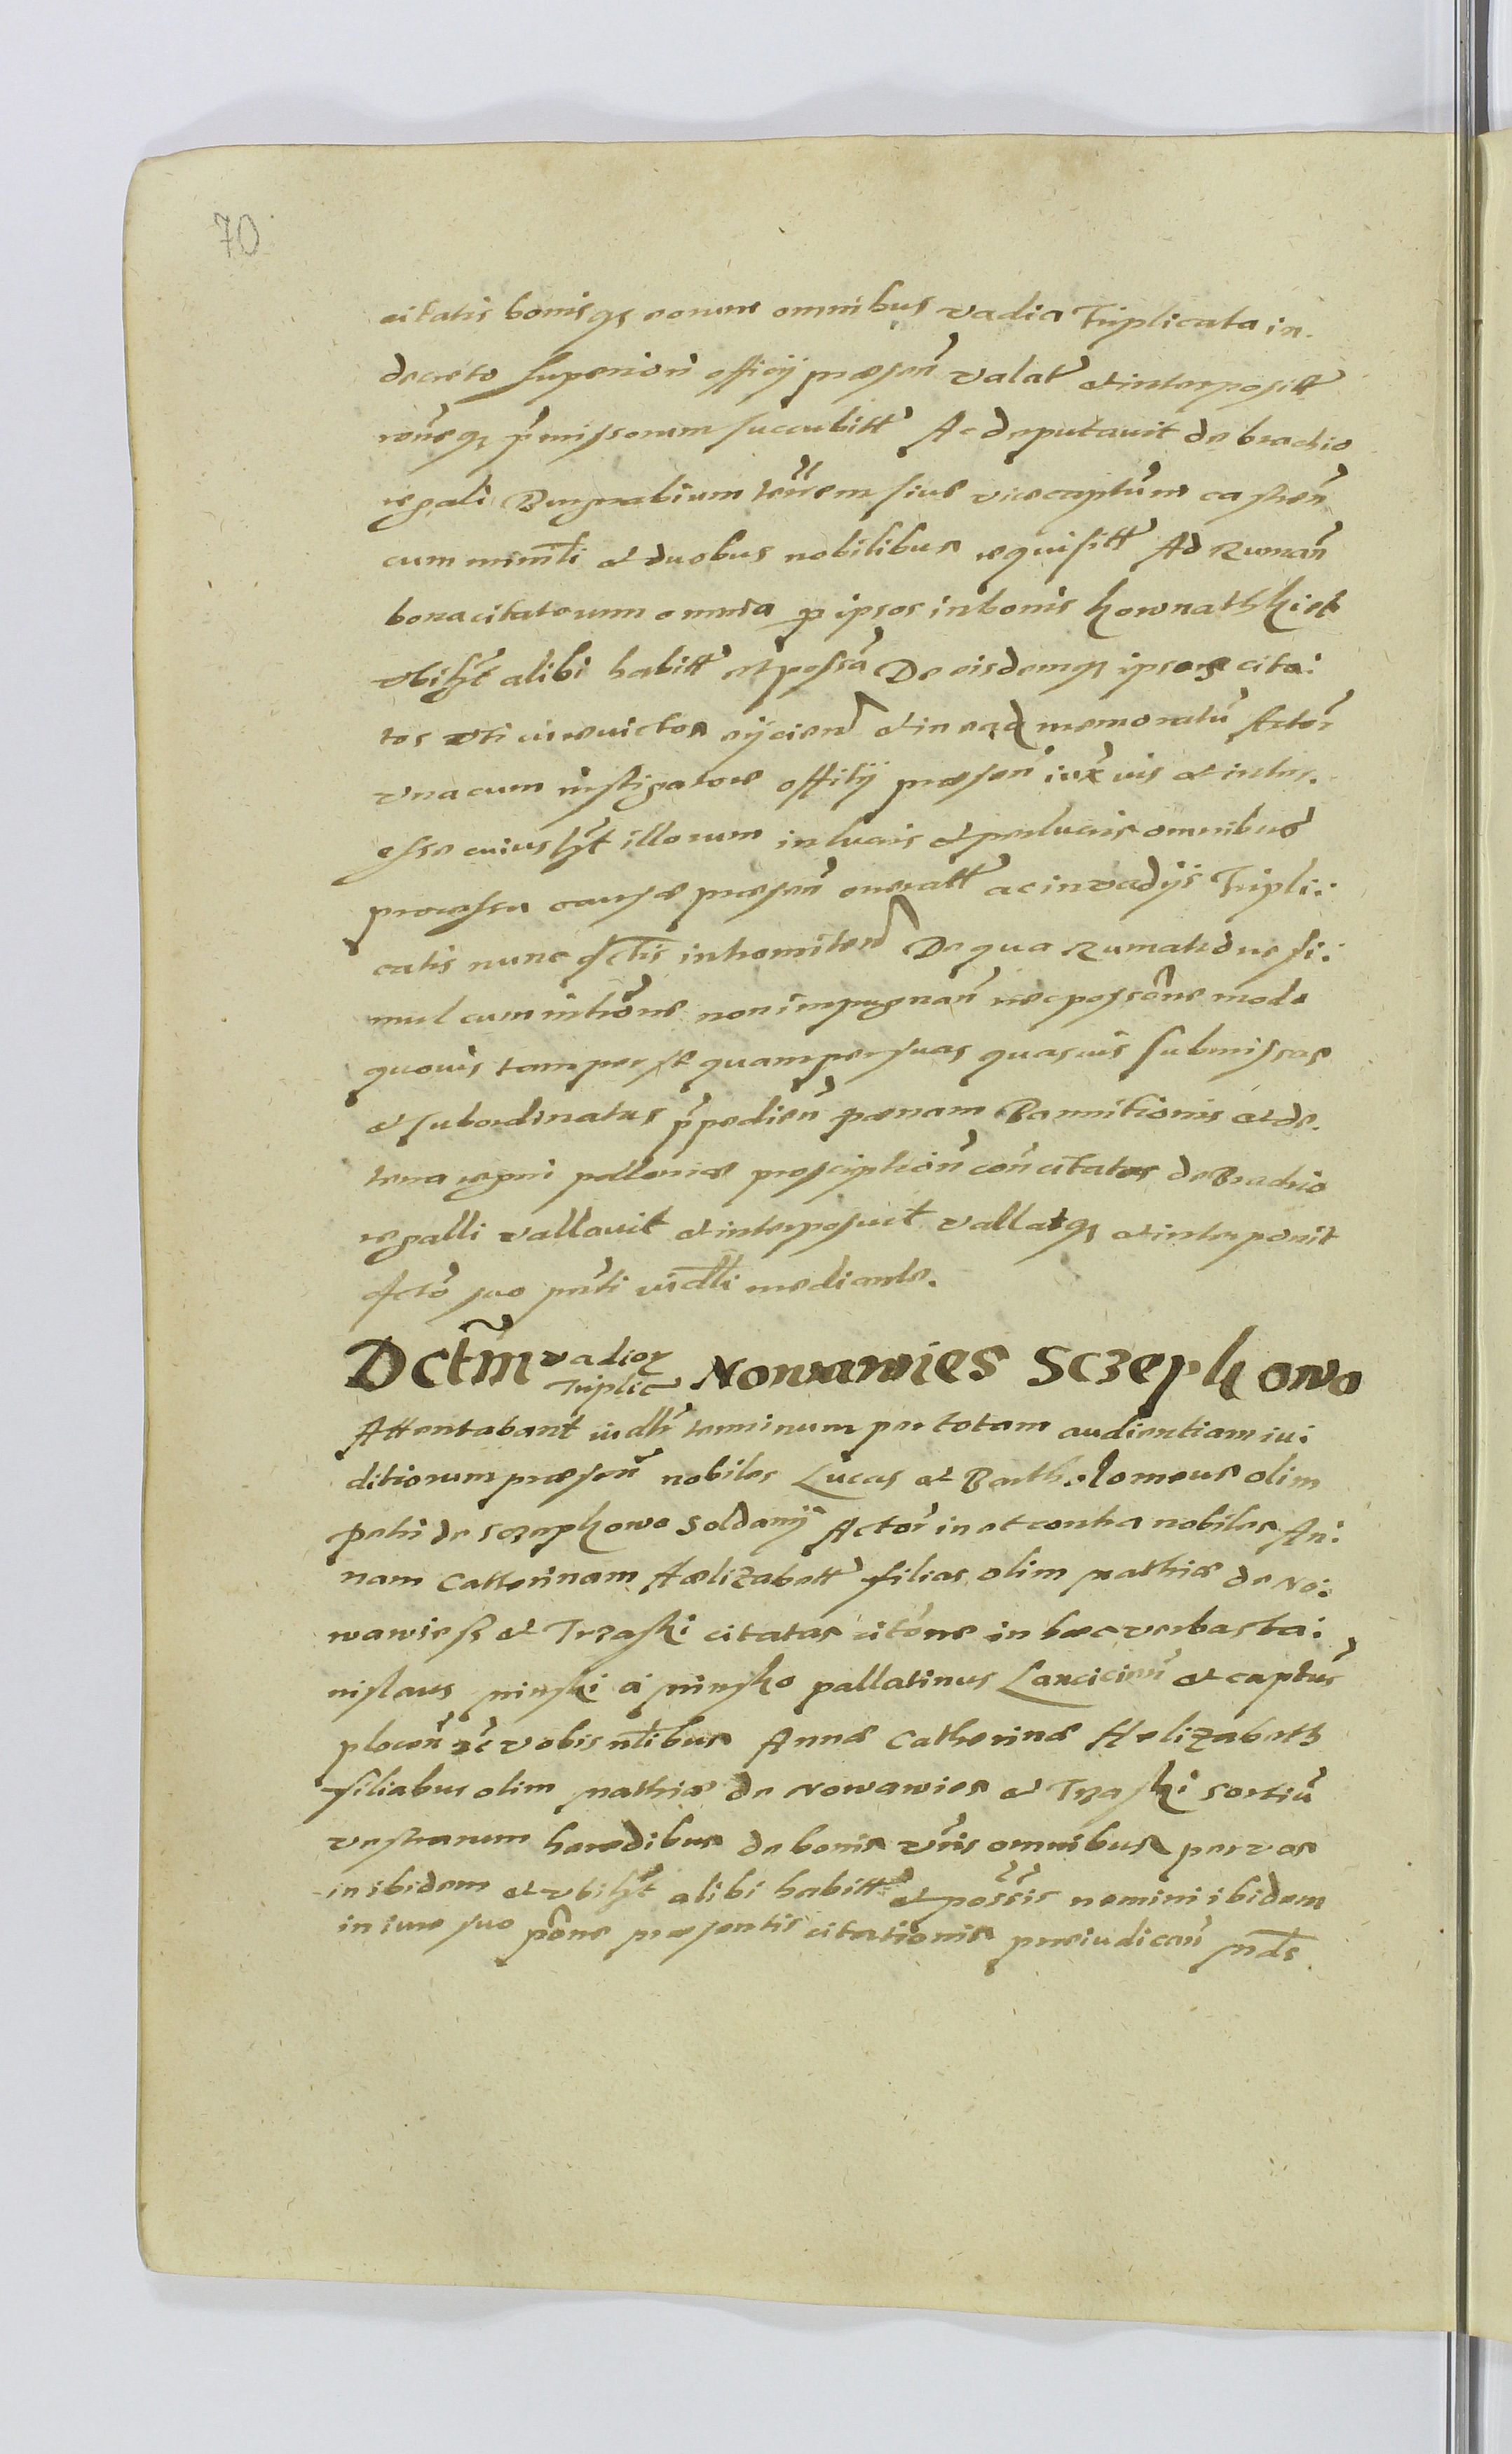 70
citatis bonisq₃ eorum omnibus vadia Triplicata in
decreto superiori officij præsen̄ valat̄ et interposit̄
roneq₃ p̄missorum succubitt̄ Ac deputavit de brachio
regali Burgrabium terrem sive vicecaptūm castren̄
cum minrli et duobus nobilibus requisitt̄ Ad Ruman̄
bona citatorum omnia per ipsos in bonis hownathki et
vbilʒt alibi habitt̄ et possā De eisdemq₃ ipsos cita:
tos vti iurevictos eijcien̄ et in eaq memoratū Actor̄
vna cum instigatore offitij præsen̄ iux̄ vis et inter.
esse cuiuslʒt illorum in lucris et perlucris omnibus
processu causæ præsen̄ oneratt̄ ac in vadijs Tripli:
catis nunc dctis intromitten̄ De qua Rumatione si:
mul cum intrōne non impugnan̄ nec possōne modo
quovis tam per se quam per suas quasvis submissas
et subordinatas p̄pedien̄ pænam Bannitionis et de.
terra regni polloniæ proscriptiōn cōn citatos de Brachio
regalli vallavit et interposuit vallatq₃ et interponit
dctō suo prnti iudlli mediante.
Dctm̄ vadior Triplic Nowawies Sczepkowo
Attentabant iudlr̄ terminum per totam audientiam iu:
ditiorum præsen̄ nobiles Lucas et Bartholomeus olim
Petri de sczepkowo soldanij Actor̄ in et contra nobiles An:
nam Catterinam Hælizabett̄ filias olim Mathiæ de No:
wawiess et Trzaski citatas citōne in hæc verba sta:
nislaus Minski a Minsko pallatinus Lanciciēn et captūs
plocen̄ ʒc̄ vobis nblibus Annæ Catherinæ Helizabeth
filiabus olim Mathiæ de Nowawies et Trzaski sortiū
vestrarum heredibus de bonis vr̄is omnibus per vos
in ibidem et vbilʒt alibi habitt̄ et possis nemini ibidem
in iure suo rōne præsentis citationis preiudican̄ Mdts.